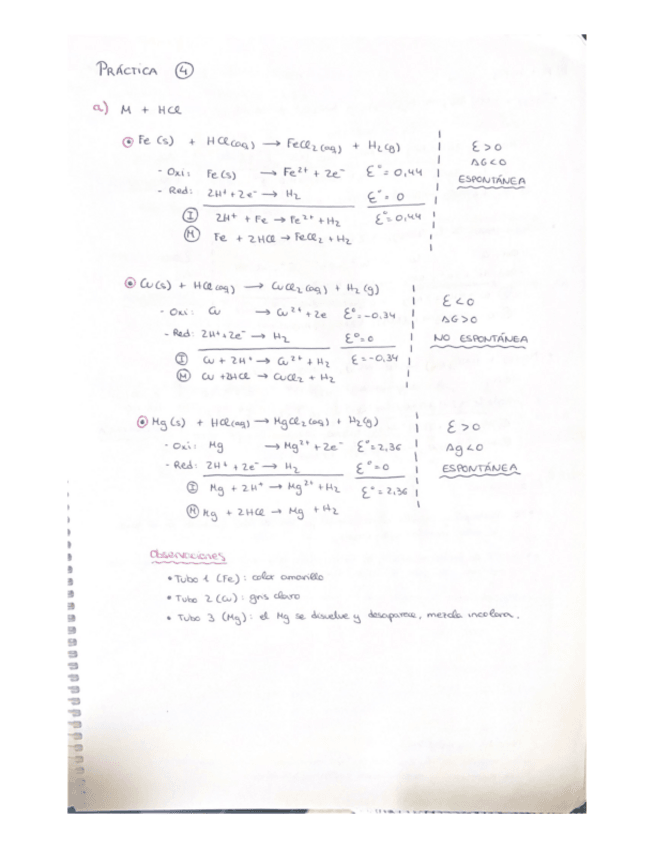 PRÁCTICA 4
a) M + HCl
Fe (s) + HCl (aq) → FeCl₂ (aq) + H₂ (g)
- Oxi: Fe (s) → Fe²⁺ + 2e⁻ Ɛ° = 0,44
- Red: 2H⁺ + 2e⁻ → H₂ Ɛ° = 0
I 2H⁺ + Fe → Fe²⁺ + H₂ Ɛ° = 0,44
M Fe + 2HCl → FeCl₂ + H₂
Ɛ > 0
ΔG < 0
ESPONTÁNEA
Cu (s) + HCl (aq) → CuCl₂ (aq) + H₂ (g)
- Oxi: Cu → Cu²⁺ + 2e Ɛ° = -0,34
- Red: 2H⁺ + 2e⁻ → H₂ Ɛ° = 0
I Cu + 2H⁺ → Cu²⁺ + H₂ Ɛ = -0,34
M Cu + 2HCl → CuCl₂ + H₂
Ɛ < 0
ΔG > 0
NO ESPONTÁNEA
Mg (s) + HCl (aq) → MgCl₂ (aq) + H₂ (g)
- Oxi: Mg → Mg²⁺ + 2e⁻ Ɛ° = 2,36
- Red: 2H⁺ + 2e⁻ → H₂ Ɛ° = 0
I Mg + 2H⁺ → Mg²⁺ + H₂ Ɛ° = 2,36
M Mg + 2HCl → Mg + H₂
Ɛ > 0
Δg < 0
ESPONTÁNEA
Observaciones
• Tubo 1 (Fe): color amarillo
• Tubo 2 (Cu): gris claro
• Tubo 3 (Mg): el Mg se disuelve y desaparece, mezcla incolora.